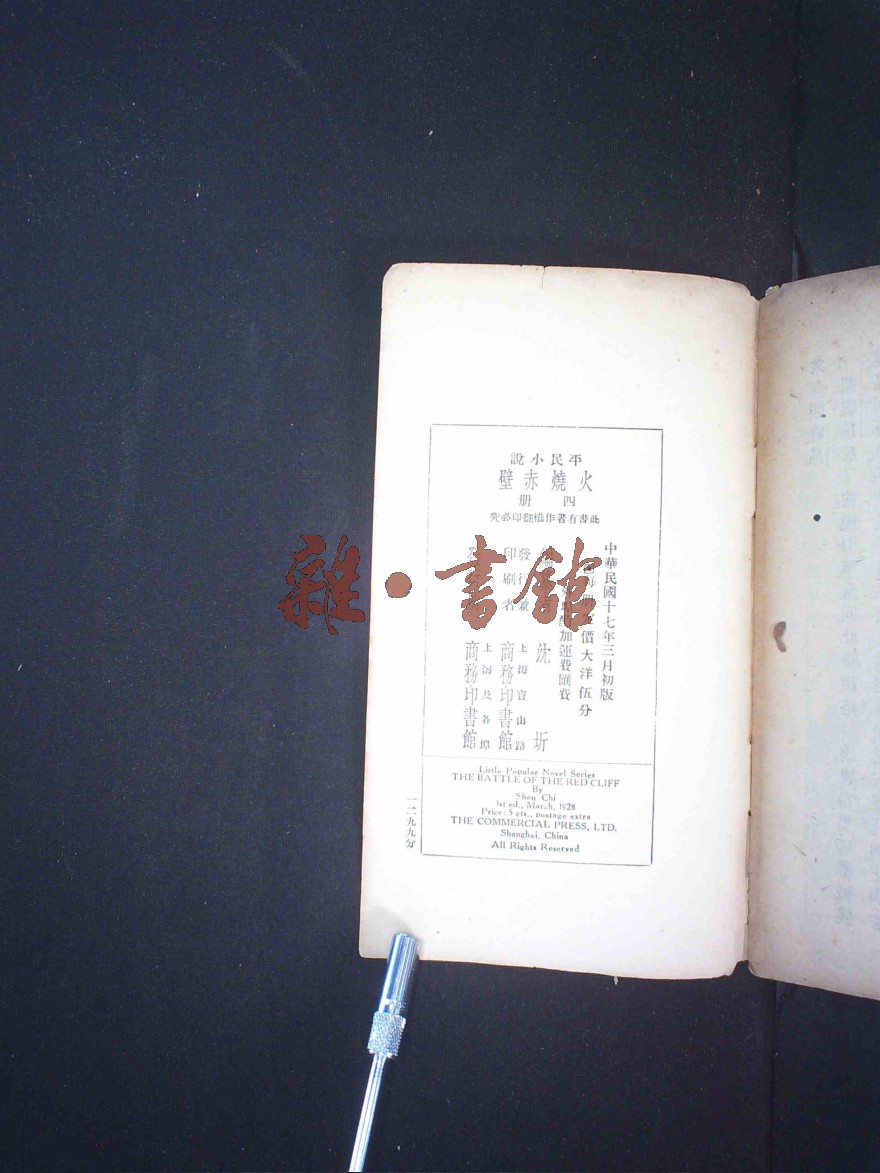 平民小說
火燒赤壁
四册
此書有著作權翻印必究
中華民國十七年三月初版
價大洋伍分
加運費匯費
沈圻
發行兼
印刷者
上海寶山路
商務印書館
上海及各埠
商務印書館
Little Popular Novel Series
THE BATTLE OF THE RED CLIFF
By
Shen Chi
1st ed., March, 1928
Price: 5 cts., postage extra
THE COMMERCIAL PRESS, LTD.
Shanghai, China
All Rights Reserved
一二九九分
雜·書館